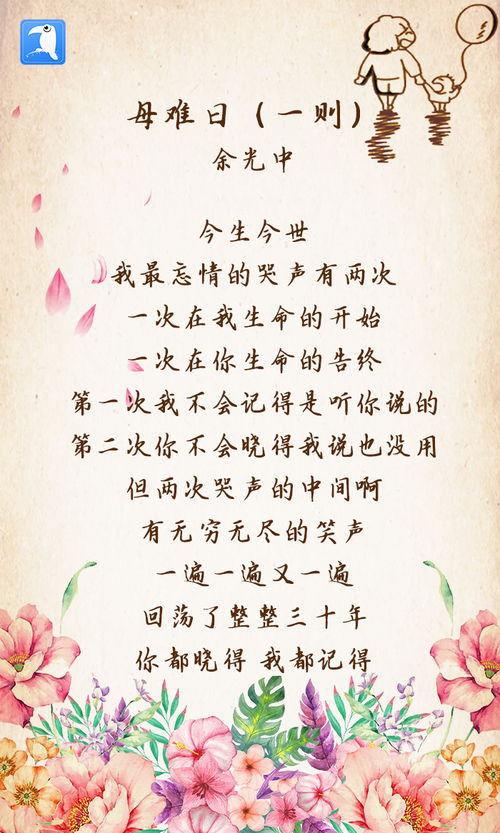 母难日（一则）
余光中
今生今世
我最忘情的哭声有两次
一次在我生命的开始
一次在你生命的告终
第一次我不会记得是听你说的
第二次你不会晓得我说也没用
但两次哭声的中间啊
有无穷无尽的笑声
一遍一遍又一遍
回荡了整整三十年
你都晓得 我都记得